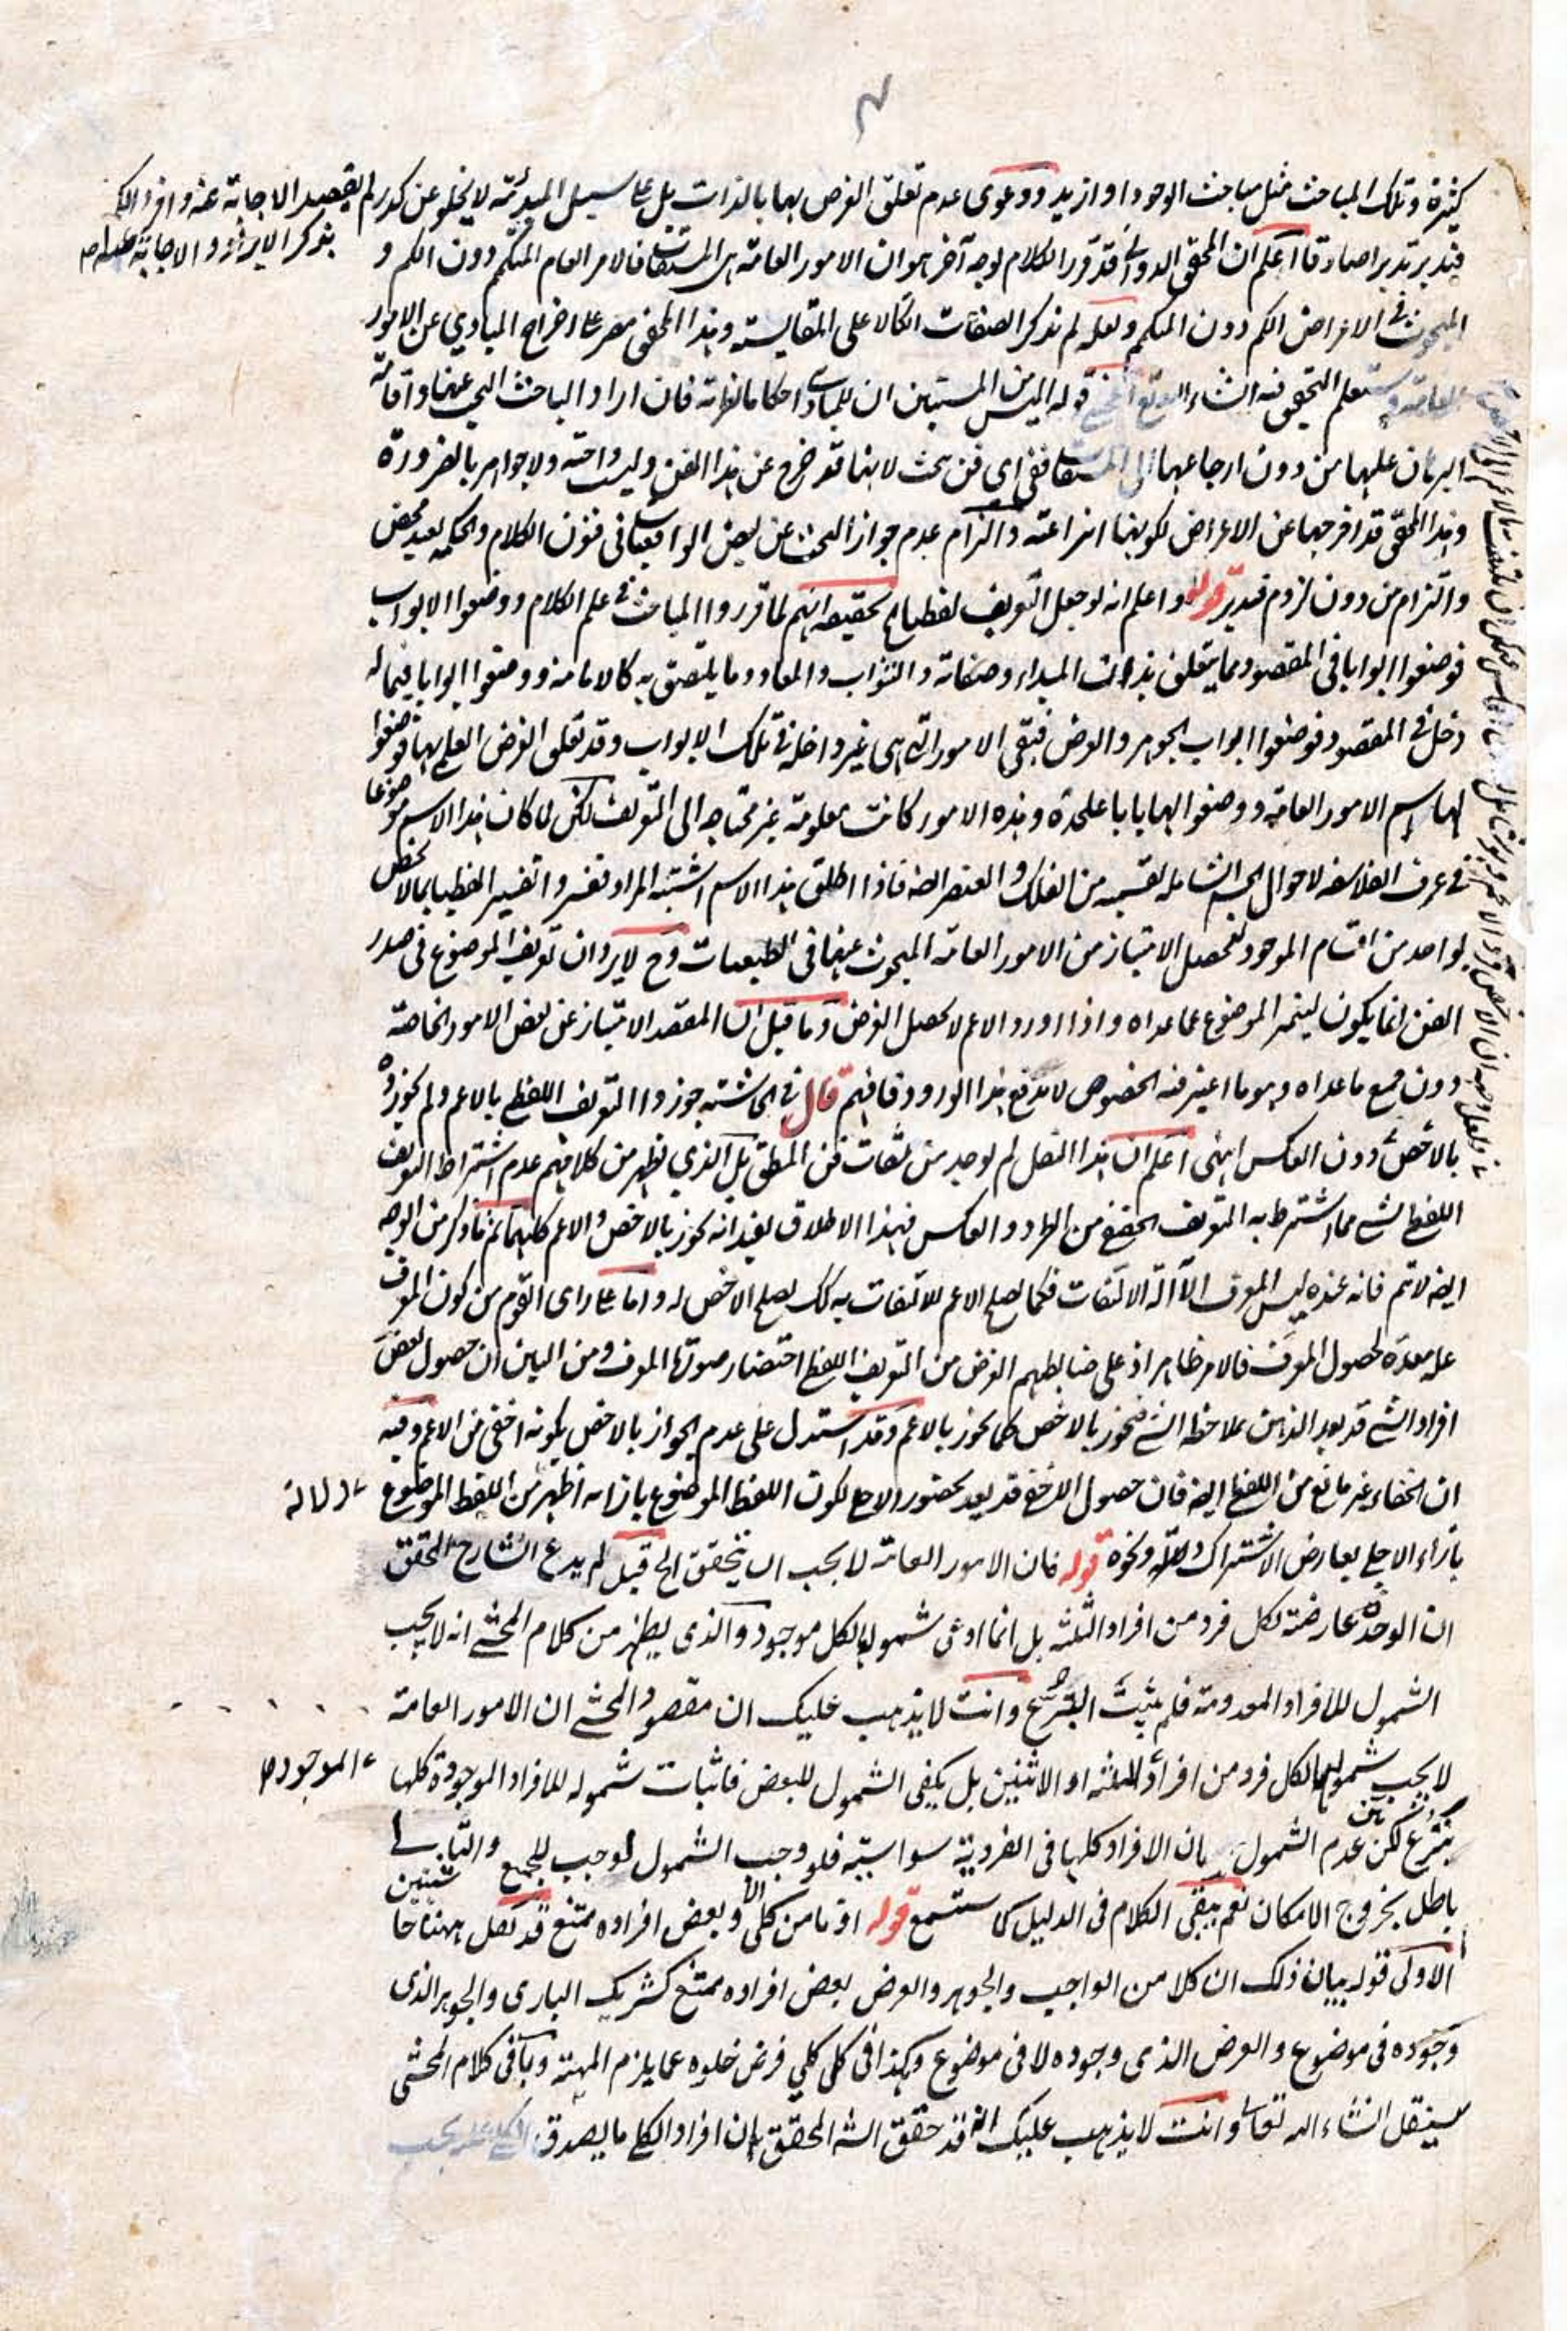 كثيرة وتلك المباحث مثل مباحث الوجود او ازيد ودعوى عدم تعلق الغرض بها بالذات بل على سبيل المبدئية لا يخلو عن كدر لم يقصد الاجابة عنه
بذكر الايراد والاجابة
فتدبر تدبرا صادقا اعلم ان المحقق الدوانى قد قرر الكلام بوجه آخر هو ان الامور العامة هى المشتقات فالامر العام المتكمم دون الكم و
المبحوث فى الاعراض الكم دون المتكمم ولعله لم يذكر الصفات اتكالا على المقايسة وهذا المحقق مصر على اخراج المبادي عن الامور
العامة وستعلم التحقيق فيه انشاء الله اليس من المستبين ان للمبادى احكاما نظرية فان اراد الباحث البحث عنها واقامة
البرهان عليها من دون ارجاعها الى المشتقات ففى اى فن يبحث لانها قد خرج عن هذا الفن وليست واجبة ولا جواهر بالضرورة
وهذا المحقق قد اخرجها عن الاعراض لكونها انتزاعية والتزام عدم جواز البحث عن بعض الواقعيات فى فنون الكلام والحكمة بعيد محض
والتزام من دون لزوم فتدبر قوله واعلم انه لو جعل التعريف لفظيا الخ تحقيقه انهم لما قرروا المباحث فى علم الكلام ووضعوا الابواب
فوضعوا ابوابا فى المقصود مما يتعلق بذات المبداء وصفاته والثواب والمعاد وما يلتصق به كالامامة ووضعوا ابوابا فيما له
دخل فى المقصود فوضعوا ابواب الجوهر والعرض فبقى الامور التى هى غير داخلة فى تلك الابواب وقد تعلق الغرض العلم بها فوضعوا
لها اسم الامور العامة ووضعوا لها بابا على حدة وهذه الامور كانت معلومة غير محتاجة الى التعريف لكن لما كان هذا الاسم موضوعا
فى عرف الفلاسفة لاحوال الجسم الشاملة لقسميه من الفلك والعنصر ايضا فاذا اطلق هذا الاسم اشتبه المراد ففسروا تفسيرا لفظيا بما لا يختص
بواحد من اقسام الموجود لتحصيل الامتياز من الامور العامة المبحوث عنها فى الطبيعيات وح لا يرد ان تعريف الموضوع فى صدر
الفن انما يكون ليتميز الموضوع عما عداه واذا اورد الاعم لا يحصل الغرض وما قيل ان المقصد الامتياز عن بعض الامور الخاصة
دون جميع ما عداه وهو ما اعتبر فيه الخصوص لا يدفع هذا الورود فافهم قال فى الحاشية جوزوا التعريف اللفظى بالاعم ولم يجوزوه
بالاخص دون العكس انتهى اعلم ان هذا النقل لم يوجد من ثقات فن المنطق بل الذي يظهر من كلامهم عدم اشتراط التعريف
اللفظى بشىء مما اشترط به التعريف الحقيقى من الطرد والعكس فهذا الاطلاق يفيد انه يجوز بالاخص والاعم كليهما ثم ما ذكر من الوجه
ايضا لا يتم فانه عنده ليس المعرف الا آلة الالتفات فكما يصلح الاعم للالتفات به كذلك يصلح الاخص له واما على راى القوم من كون المعرف
علة معدة لحصول المعرف فالامر ظاهر اذ على ضابطهم الغرض من التعريف اللفظى احتضار صورة المعرف ومن البين ان حصول بعض
افراد الشىء قد يعد الذهن بملاحظة الشىء فيجوز بالاخص كما يجوز بالاعم وقد استدل على عدم الجواز بالاخص بكونه اخفى من الاعم وفيه
ان الخفاء غير مانع من اللفظى ايضا فان حصول الاخفى قد يعد لحضور الاجلى لكون اللفظ الموضوع بازائه اظهر من اللفظ الموضوع
دلالة
بازاء الاجلى بعارض الاشتراك ونحوه قوله فان الامور العامة لا يجب ان يتحقق الخ قيل لم يدع الشارح المحقق
ان الوحدة عارضة لكل فرد من افراد الثلثة بل انما ادعى شمولها لكل موجود والذى يظهر من كلام المحشى انه لا يجب
الشمول للافراد المعدومة فلم يثبت التبرع وانت لا يذهب عليك ان مقصود المحشى ان الامور العامة
لا يجب شمولها لكل فرد من افراد الثلثة او الاثنين بل يكفى الشمول للبعض فاثبات شموله للافراد الموجودة كلها
الموجودة
تبرع لكن عدم الشمول بان الافراد كلها فى الفردية سواسية فلو وجب الشمول لوجب للجميع والتالى
باطل بخروج الامكان نعم يبقى الكلام فى الدليل كما ستسمع قوله اذ ما من كلى الا وبعض افراده ممتنع قد نقل ههنا حاشيتين
الاولى قوله بيان ذلك ان كلا من الواجب والجوهر والعرض بعض افراده ممتنع كشريك البارى والجوهر الذى
وجوده فى موضوع والعرض الذى وجوده لا فى موضوع وهكذا فى كل كلي فرض خلوه عما يلزم المهية وباقى كلام المحشى
سينقل انشاء الله تعالى وانت لا يذهب عليك انه قد حقق الشه المحقق ان افراد الكلى ما يصدق